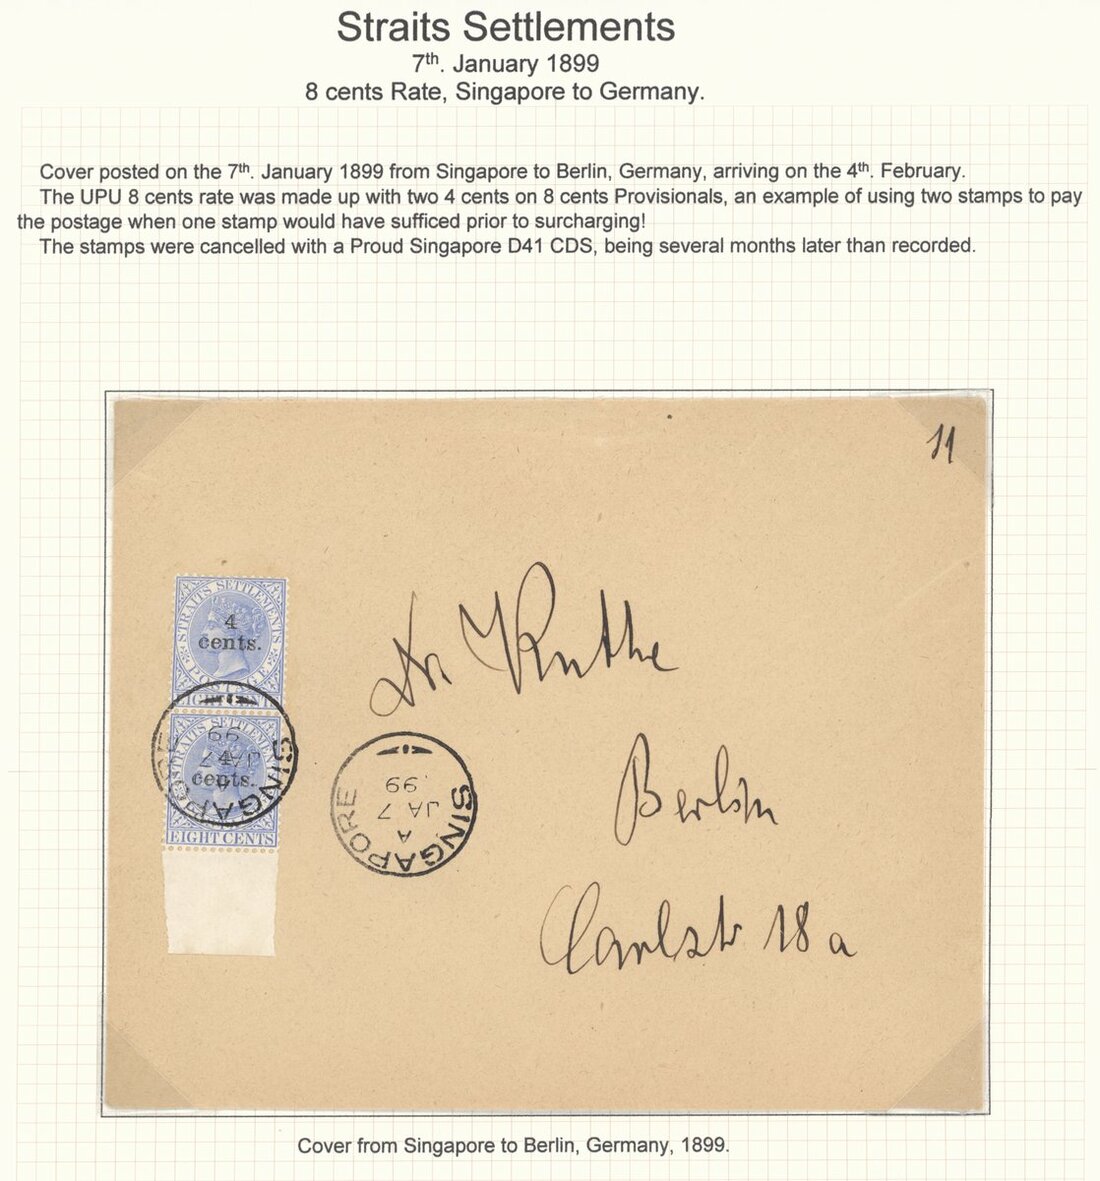 Straits Settlements
7th. January 1899
8 cents Rate, Singapore to Germany.
Cover posted on the 7th. January 1899 from Singapore to Berlin, Germany, arriving on the 4th. February.
The UPU 8 cents rate was made up with two 4 cents on 8 cents Provisionals, an example of using two stamps to pay
the postage when one stamp would have sufficed prior to surcharging!
The stamps were cancelled with a Proud Singapore D41 CDS, being several months later than recorded.
11
STRAITS SETTLEMENTS
4
cents.
POSTAGE
EIGHT CENTS
STRAITS SETTLEMENTS
4
cents.
EIGHT CENTS
SINGAPORE
JA 7
99
SINGAPORE
A
JA 7
99
Dr Ruthe
Berlin
Carlstr 18a
Cover from Singapore to Berlin, Germany, 1899.